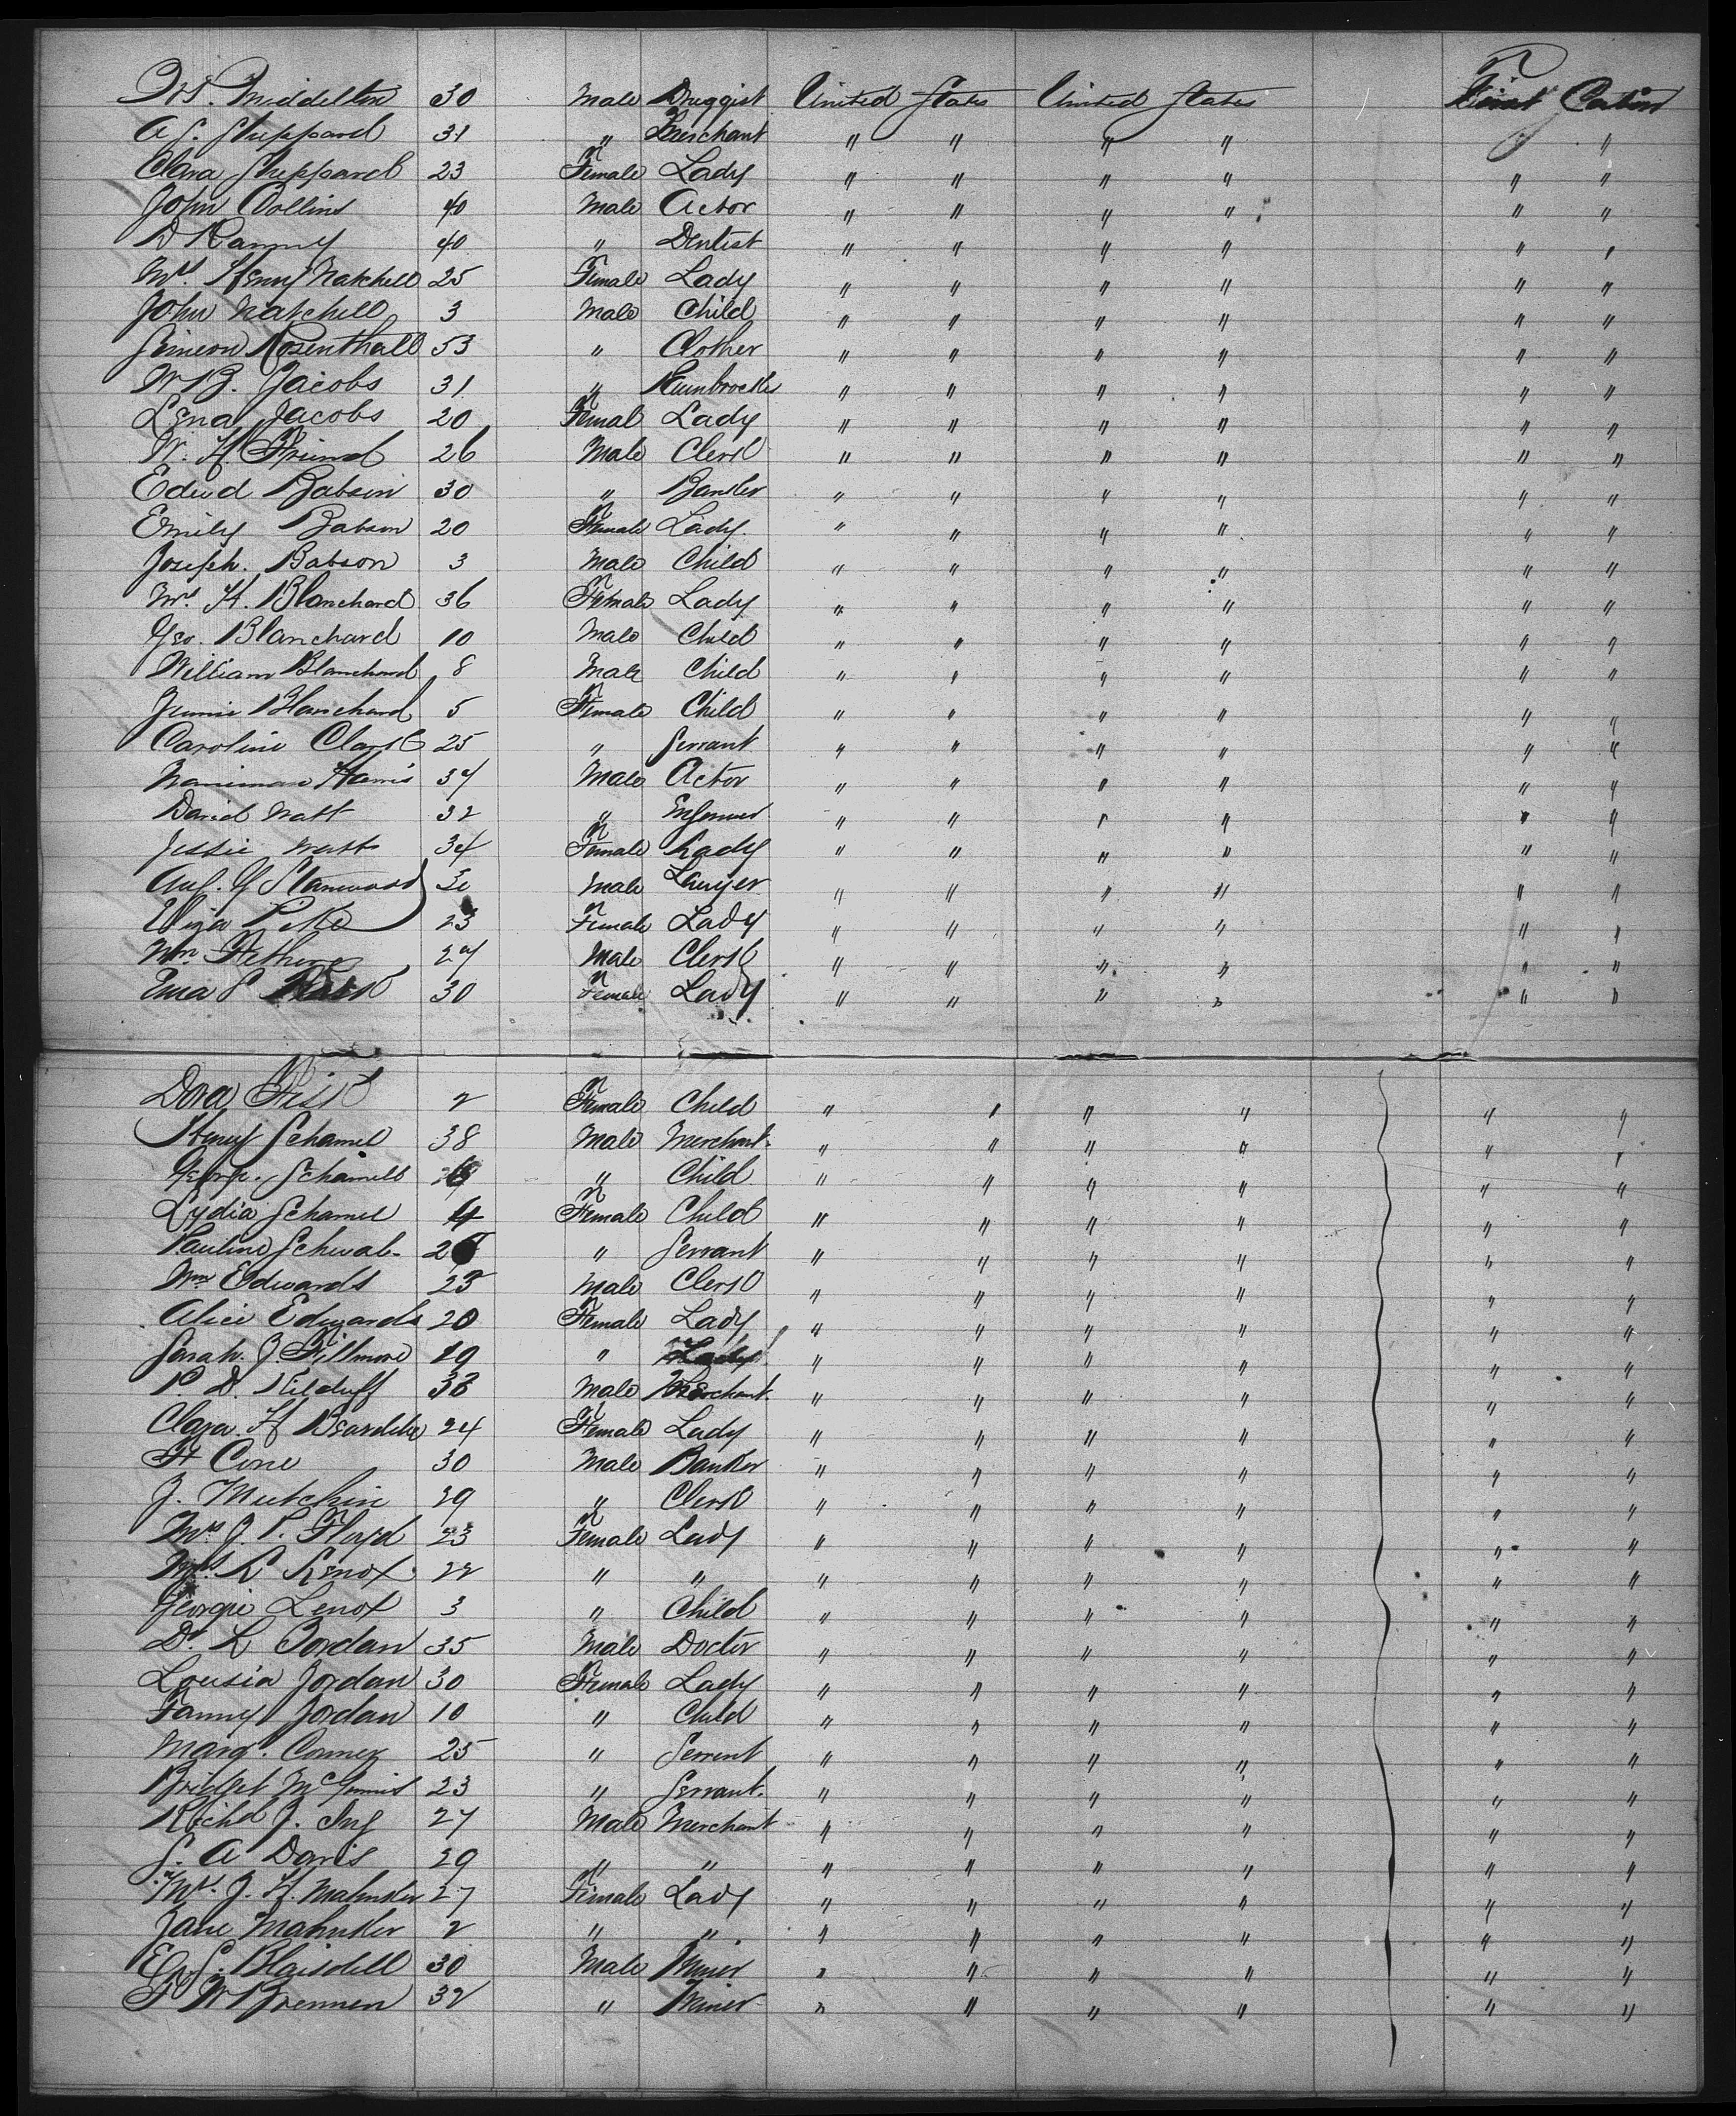 Middelton 30 Male Druggist United States United States First Cabin
A. S. Sheppard 31 " Merchant " " " " "
Clara Sheppard 23 Female Lady " " " " " "
John Collins 40 Male Actor " " " " " "
D Ranny 40 " Dentist " " " " " "
Mrs. Henry Natchell 25 Female Lady " " " " " "
John Natchell 3 Male Child " " " " " "
Simeon Rosenthall 53 " Clother " " " " " "
W B. Jacobs 31 " " " " " " "
Lena Jacobs 20 Femal Lady " " " " " "
W. H. Friend 26 Male Clerk " " " " " "
Edwd Babson 30 " Banker " " " " " "
Emily Babson 20 Female Lady. " " " " " "
Joseph. Babson 3 Male Child " " " " " "
Mrs. H. Blanchard 36 Female Lady " " " " " "
Geo. Blanchard 10 Male Child " " " " " "
William Blanchard 8 Male Child " " " " " "
Jennie Blanchard 5 Female Child " " " " " "
Caroline Clark 25 " Servant " " " " " "
Harris 34 Male Actor " " " " " "
David Watt 32 " " " " " " "
Jessie Watt 34 Female Lady " " " " " "
Stanwood Male Lawyer " " " " " "
Eliza Pike 23 Female Lady " " " " " "
Wm 27 Male Clerk " " " " " "
30 Female Lady " " " " " "
Dora Fisk 2 Female Child " " " " " "
Henry Schamel 38 Male Merchant. " " " " " "
Schamell " Child " " " " " "
Lydia Schamel 4 Female Child " " " " " "
Pauline Schwab " Servant " " " " " "
Wm Edwards 23 Male Clerk " " " " " "
Alice Edwards 20 Female Lady " " " " " "
Sarah. J. Fillmore 19 " Lady " " " " " "
P. D. Kilduff 38 Male Merchant. " " " " " "
Clara. H 24 Female Lady " " " " " "
H Cone 30 Male Banker " " " " " "
J. Mutchin 29 " Clerk " " " " " "
Mrs J. P. Floyd 23 Female Lady " " " " " "
Mrs. L Lenox 22 " " " " " " " "
Georgie Lenox 3 " Child " " " " " "
Dr. L Jordan 35 Male Doctor " " " " " "
Lousia Jordan 30 Female Lady " " " " " "
Fanny Jordan 10 " Child " " " " " "
Marg. 25 " Servent " " " " " "
Bridget 23 " Servant. " " " " " "
Richd J. 27 Male Merchant " " " " " "
S. A Davis 29 " " " " " " " "
Mrs. J. H. Mahnker 27 Female Lady " " " " " "
Jane Mahnker 2 " " " " " " " "
E. S. Blaisdell 30 Male Miner " " " " " "
F W Brennen 32 " Miner " " " " " "